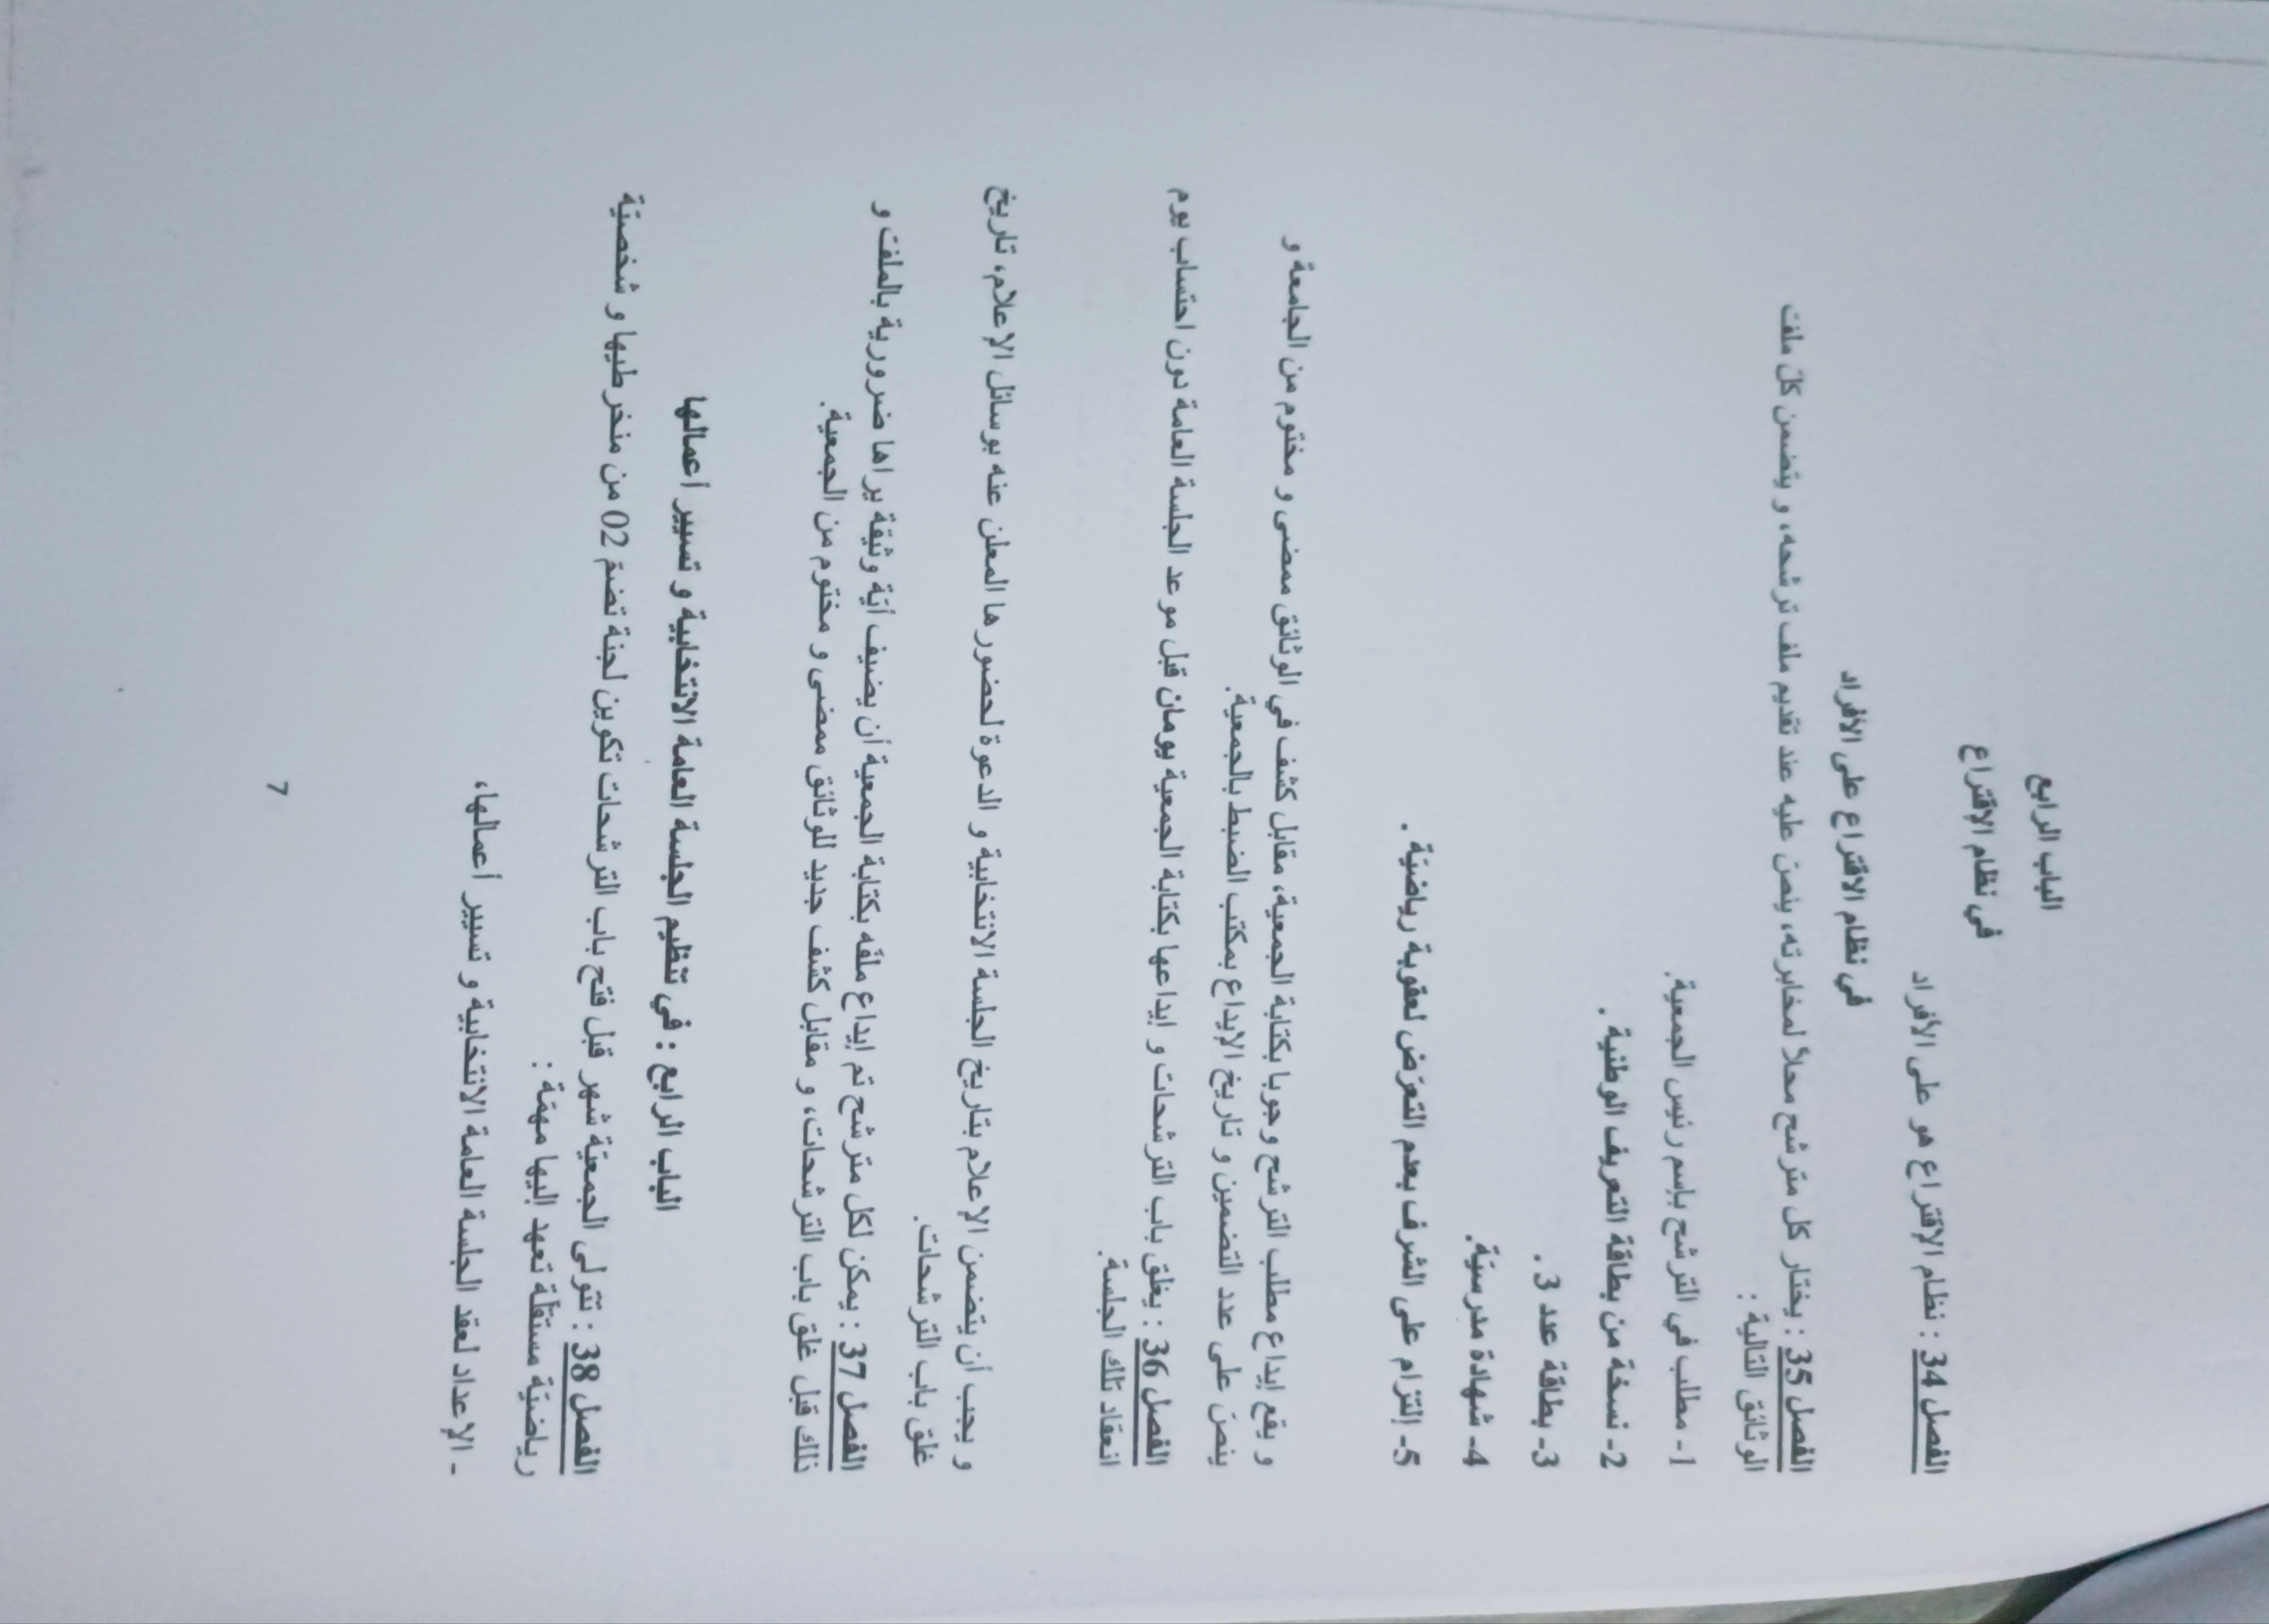 الباب الرابع
في نظام الإقتراع
الفصل 34 : نظام الإقتراع هو على الأفراد
في نظام الاقتراع على الأفراد
الفصل 35 : يختار كل مترشح محلاّ لمخابرته، ينصّ عليه عند تقديم ملف ترشحه، و يتضمن كلّ ملف
الوثائق التالية :
1- مطلب في الترشح بإسم رئيس الجمعية.
2- نسخة من بطاقة التعريف الوطنية .
3- بطاقة عدد 3 .
4- شهادة مدرسيّة.
5- إلتزام على الشرف بعدم التعرّض لعقوبة رياضيّة .
و يقع إيداع مطلب الترشح وجوبا بكتابة الجمعية، مقابل كشف في الوثائق ممضى و مختوم من الجامعة و
ينصّ على عدد التضمين و تاريخ الإيداع بمكتب الضبط بالجمعية.
الفصل 36 : يغلق باب الترشحات و إيداعها بكتابة الجمعية يومان قبل موعد الجلسة العامة دون احتساب يوم
انعقاد تلك الجلسة.
و يجب أن يتضمن الإعلام بتاريخ الجلسة الانتخابية و الدعوة لحضورها المعلن عنه بوسائل الإعلام، تاريخ
غلق باب الترشحات.
الفصل 37 : يمكن لكل مترشح تم إيداع ملفّه بكتابة الجمعية أن يضيف أيّة وثيقة يراها ضرورية بالملف و
ذلك قبل غلق باب الترشحات، و مقابل كشف جديد للوثائق ممضى و مختوم من الجمعية.
الباب الرابع : في تنظيم الجلسة العامة الانتخابية و تسيير أعمالها
الفصل 38 : تتولى الجمعيّة شهر قبل فتح باب الترشحات تكوين لجنة تضمّ 02 من منخرطيها و شخصيّة
رياضيّة مستقلّة تعهد إليها مهمّة :
- الإعداد لعقد الجلسة العامة الانتخابية و تسيير أعمالها،
7